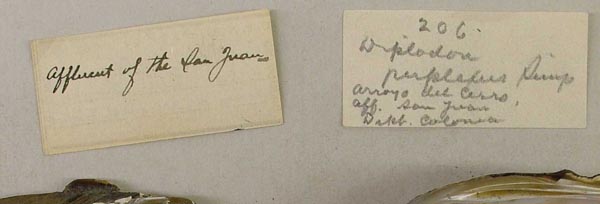 affluent of the San Juan
206.
Diplodon
perplexus Simp
arroyo del Cerro,
aff. San Juan
Dept. Colonia